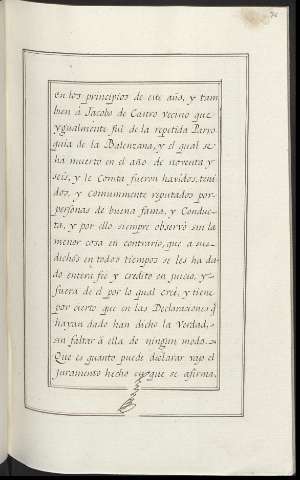 en los principios de este año, y tam
bien á Jacobo de Castro vecino que
ygualmente fué de la repetida Parro
quia de la Balenzana, y el qual se
ha muerto en el año de noventa y
seis, y le Consta fueron havidos, teni
dos, y comunmente reputados por
personas de buena fama, y Conduc
ta, y por ello siempre observó sin la
menor cosa en contrario, que a sus
dichos en todos tiempos se les ha da
do entera fié y credito en juicio, y
fuera de él por lo qual cree, y tiene
por cierto que en las Declaraciones q.
hayan dado han dicho la Verdad,
sin faltar á ella de ningun modo.
Que es quanto puede declarar vajo el
juramento hecho en que se afirma,